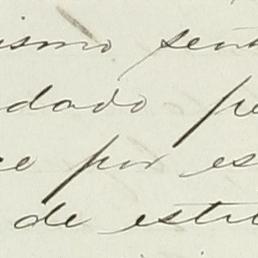 ismo sen
dado pe
e por es
de estu